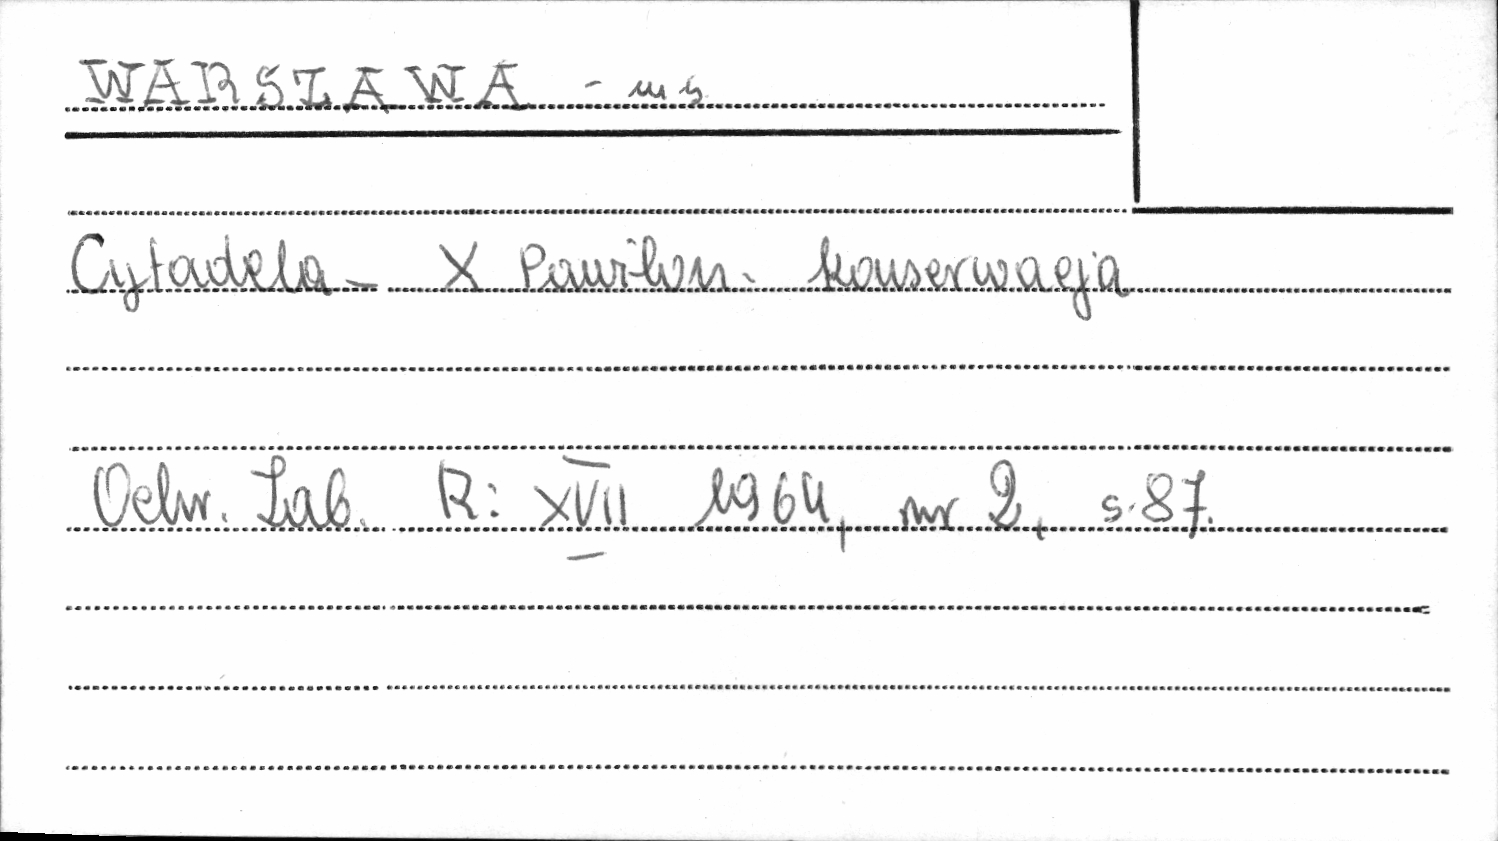 WARSZAWA - m s
Cytadela - X Pawilon - konserwacja
Ochr. Zab. R: XVII 1964, nr 2, s. 87.